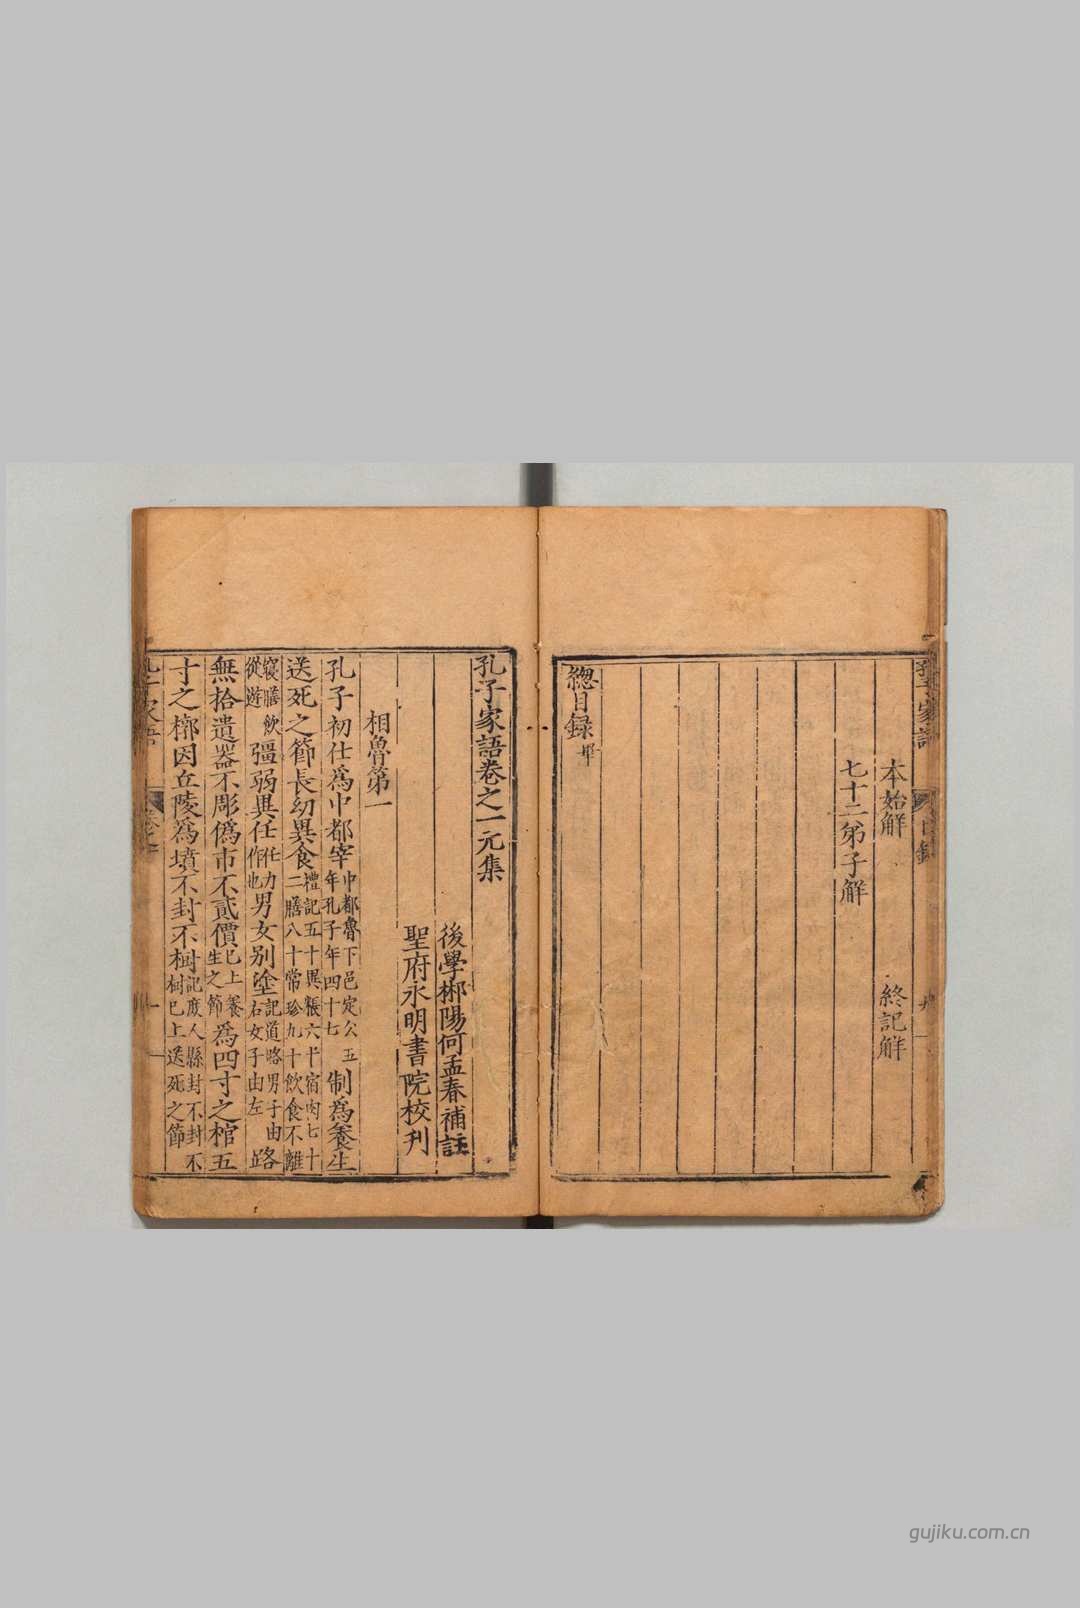 孔子家語
目錄
本始解
終記解
七十二弟子解
總目録畢
孔子家語卷之一元集
後學郴陽何孟春補註
聖府永明書院校刋
相魯第一
孔子初仕爲中都宰中都魯下邑定公五年孔子年四十七制爲養生
送死之節長幼異食禮記五十異粻六十宿肉七十二膳八十常珍九十飲食不離
寢膳飲從遊彊弱異任任力作也男女别塗記道路男子由右女子由左路
無拾遺器不彫僞市不貳價已上養生之節爲四寸之棺五
寸之槨因丘陵爲墳不封不樹記庶人縣封不封不樹已上送死之節
gujiku.com.cn